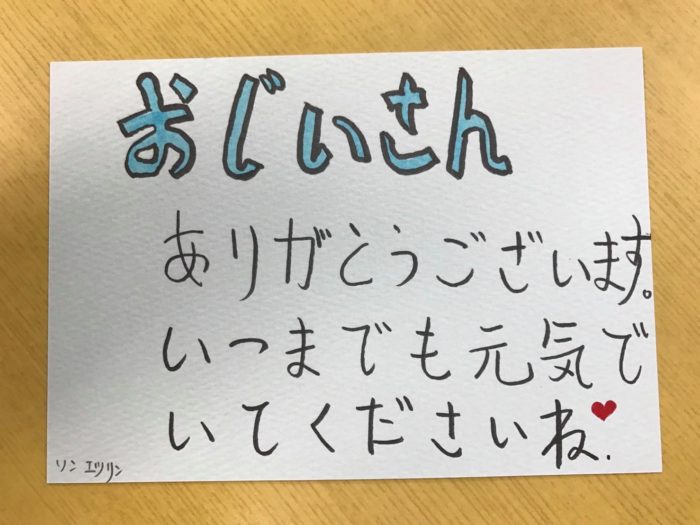 おじいさん
ありがとうございます。
いつまでも元気で
いてくださいね.
ソン エツリン